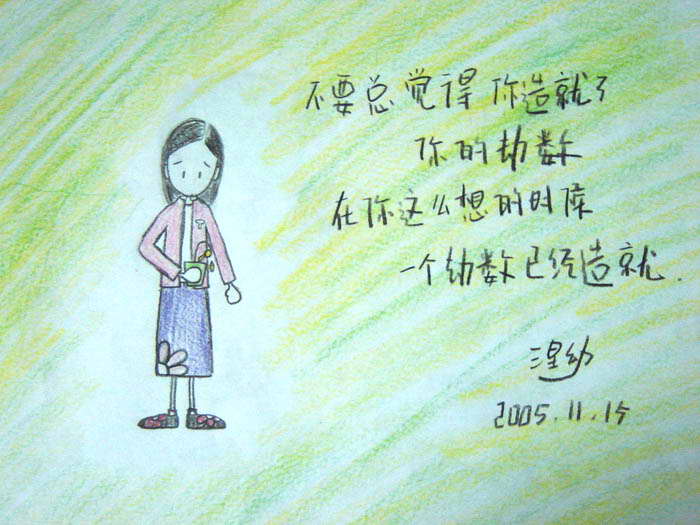 不要总觉得你造就了
你的劫数
在你这么想的时候
一个劫数已经造就.
2005.11.15